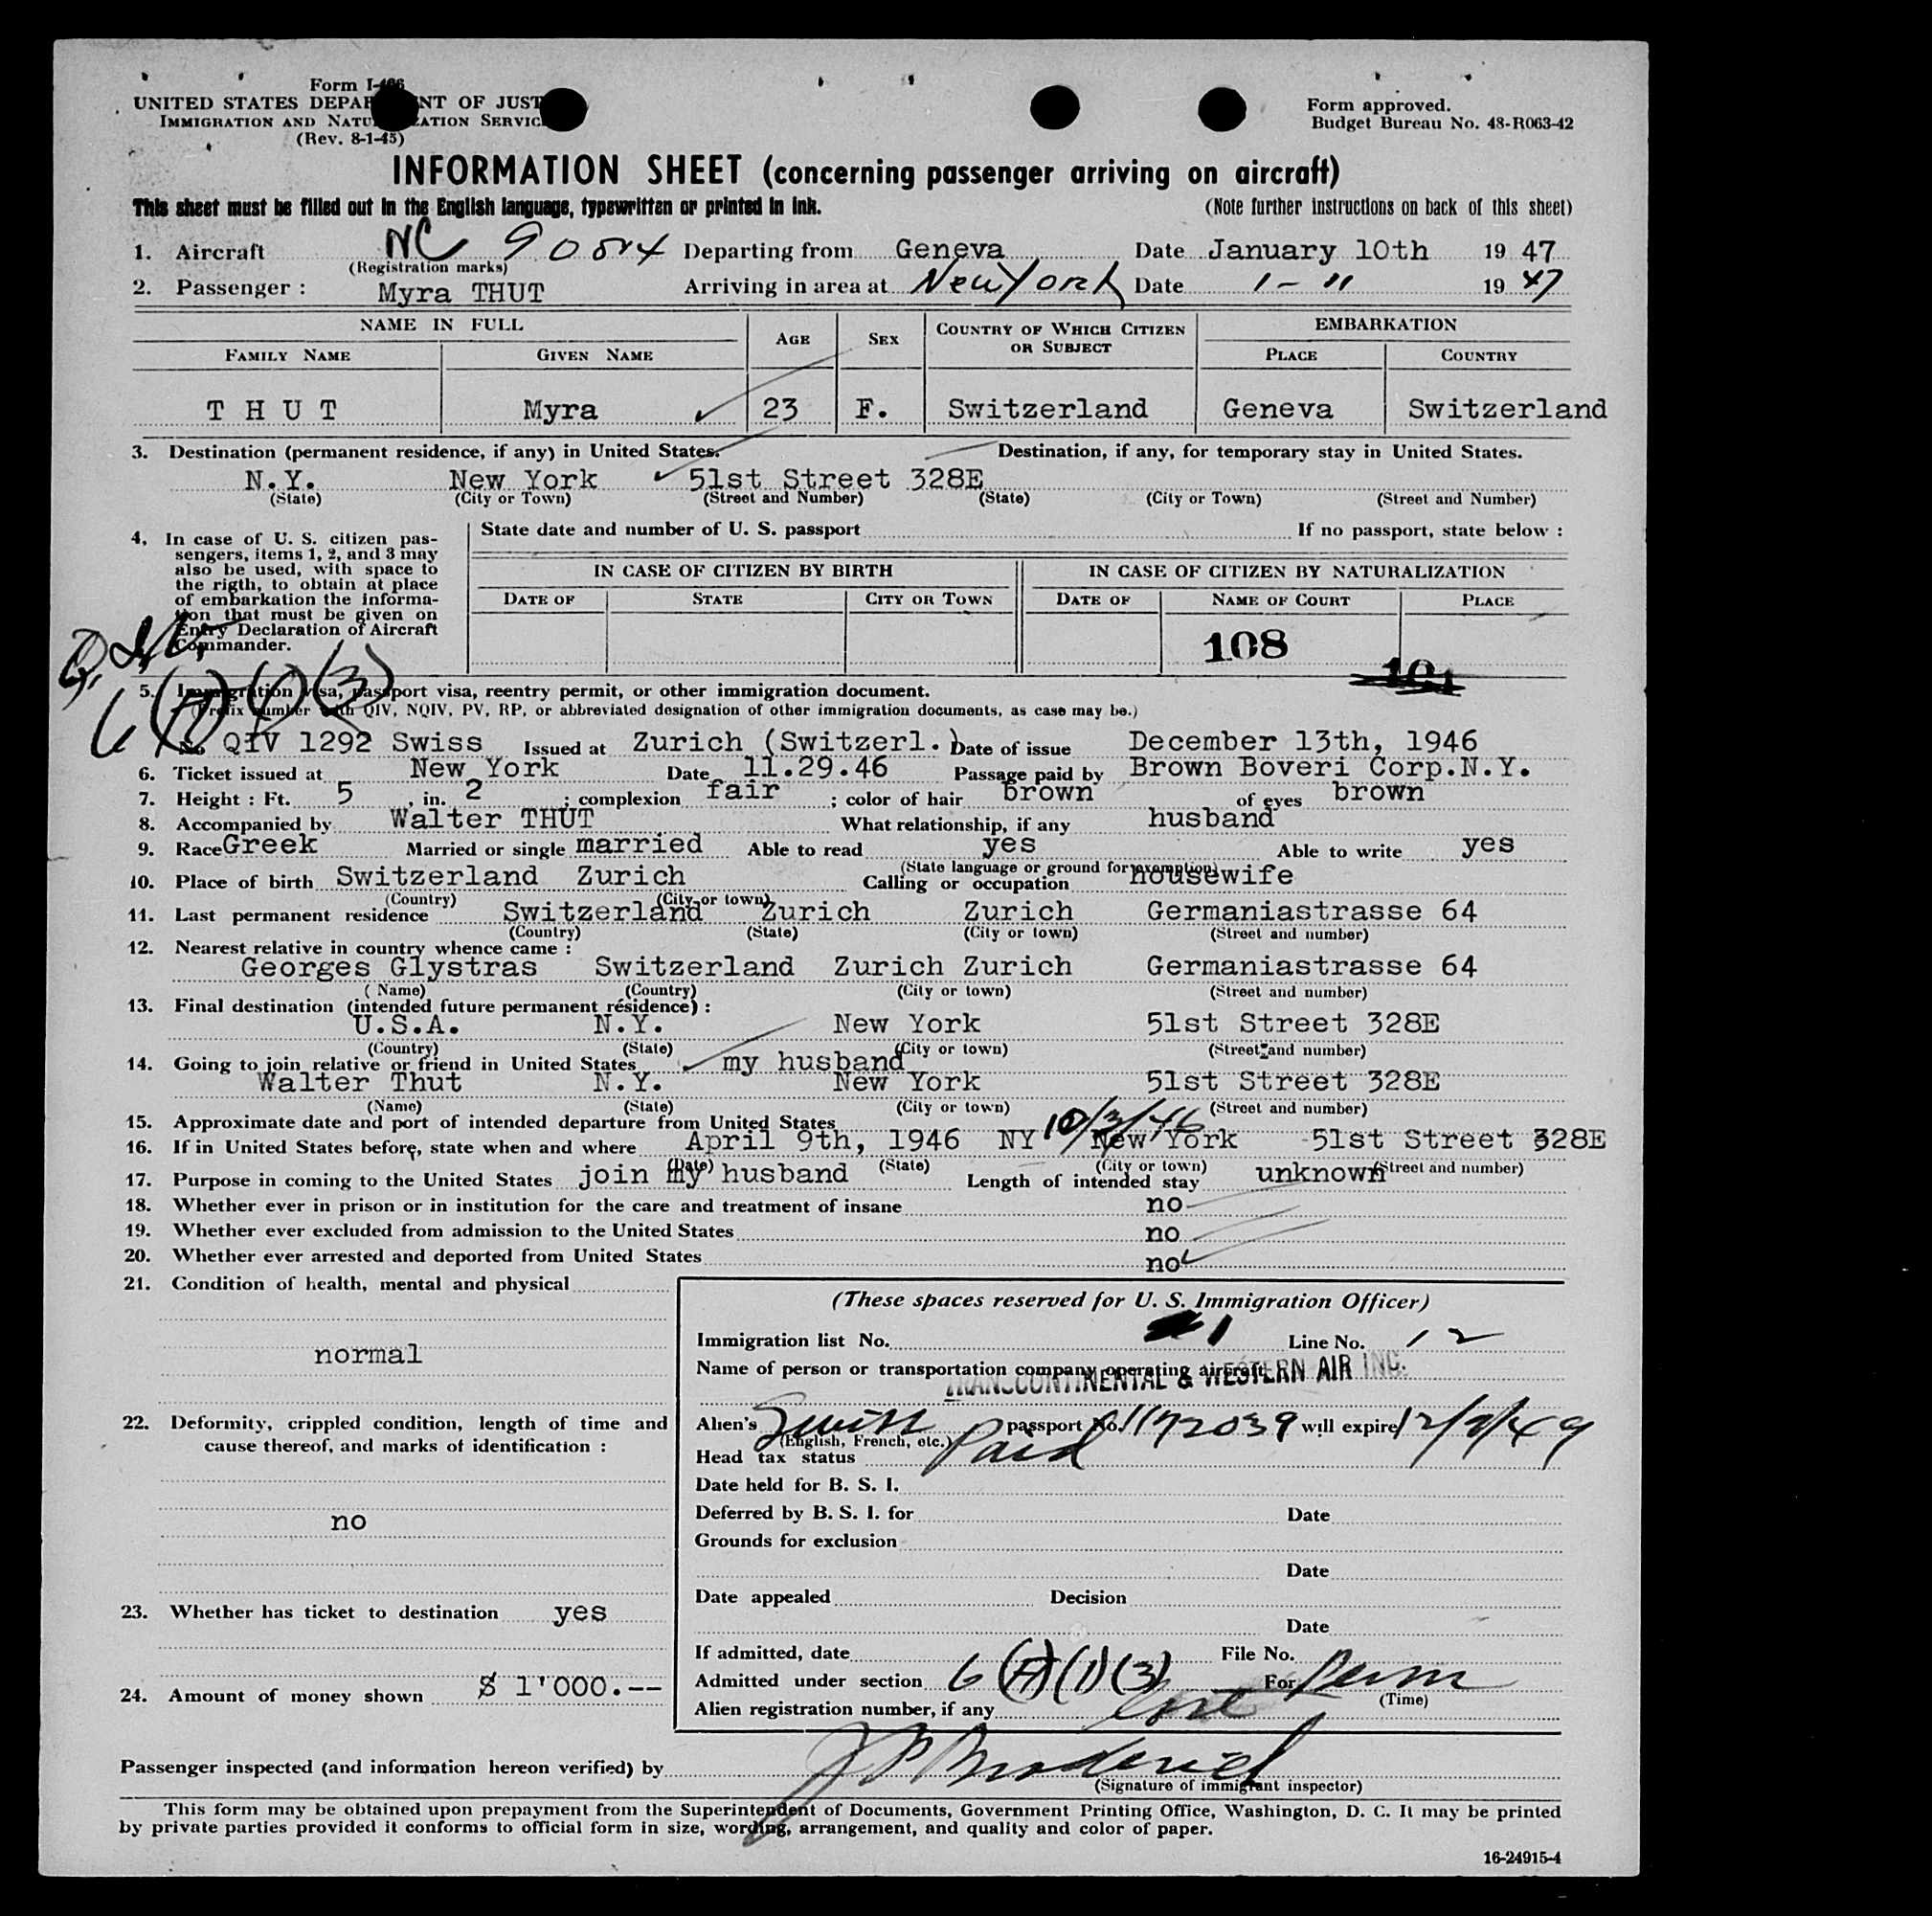 Form I-466
UNITED STATES DEPARTMENT OF JUSTICE
IMMIGRATION AND NATURALIZATION SERVICE
(Rev. 8-1-45)
Form approved.
Budget Bureau No. 43-R063-42
INFORMATION SHEET (concerning passenger arriving on aircraft)
This sheet must be filled out in the English language, typewritten or printed in ink. (Note further instructions on back of this sheet)
1. Aircraft NC Departing from Geneva Date January 10th 19 47
(Registration marks)
2. Passenger : Myra THUT Arriving in area at New York Date 1-11 19 47
NAME IN FULL AGE SEX COUNTRY OF WHICH CITIZEN OR SUBJECT EMBARKATION
FAMILY NAME GIVEN NAME PLACE COUNTRY
T H U T Myra 23 F. Switzerland Geneva Switzerland
3. Destination (permanent residence, if any) in United States. Destination, if any, for temporary stay in United States.
N.Y. New York 51st Street 328E
(State) (City or Town) (Street and Number) (State) (City or Town) (Street and Number)
4. In case of U. S. citizen pas-
sengers, items 1, 2, and 3 may
also be used, with space to
the rigth, to obtain at place
of embarkation the informa-
tion that must be given on
Entry Declaration of Aircraft
Commander.
State date and number of U. S. passport If no passport, state below :
IN CASE OF CITIZEN BY BIRTH IN CASE OF CITIZEN BY NATURALIZATION
DATE OF STATE CITY OR TOWN DATE OF NAME OF COURT PLACE
108
6(A)(1)(3)
5. Immigration visa, passport visa, reentry permit, or other immigration document.
(Prefix number with QIV, NQIV, PV, RP, or abbreviated designation of other immigration documents, as case may be.)
No QIV 1292 Swiss Issued at Zurich (Switzerl.) Date of issue December 13th, 1946
6. Ticket issued at New York Date 11.29.46 Passage paid by Brown Boveri Corp.N.Y.
7. Height : Ft. 5 , in. 2 ; complexion fair ; color of hair brown of eyes brown
8. Accompanied by Walter THUT What relationship, if any husband
9. Race Greek Married or single married Able to read yes Able to write yes
(State language or ground for exemption)
10. Place of birth Switzerland Zurich Calling or occupation housewife
(Country) (City or town)
11. Last permanent residence Switzerland Zurich Zurich Germaniastrasse 64
(Country) (State) (City or town) (Street and number)
12. Nearest relative in country whence came :
Georges Glystras Switzerland Zurich Zurich Germaniastrasse 64
(Name) (Country) (City or town) (Street and number)
13. Final destination (intended future permanent résidence) :
U.S.A. N.Y. New York 51st Street 328E
(Country) (State) (City or town) (Street and number)
14. Going to join relative or friend in United States my husband
Walter Thut N.Y. New York 51st Street 328E
(Name) (State) (City or town) (Street and number)
15. Approximate date and port of intended departure from United States 10/3/46
16. If in United States before, state when and where April 9th, 1946 NY New York 51st Street 328E
(Date) (State) (City or town) (Street and number)
17. Purpose in coming to the United States join my husband Length of intended stay unknown
18. Whether ever in prison or in institution for the care and treatment of insane no
19. Whether ever excluded from admission to the United States no
20. Whether ever arrested and deported from United States no
21. Condition of health, mental and physical
normal
22. Deformity, crippled condition, length of time and
cause thereof, and marks of identification :
no
23. Whether has ticket to destination yes
24. Amount of money shown $ 1'000.--
(These spaces reserved for U. S. Immigration Officer)
Immigration list No. 1 Line No. 12
Name of person or transportation company operating aircraft
TRANSCONTINENTAL & WESTERN AIR INC.
Alien's Swiss passport No. 1172039 will expire 12/9/49
(English, French, etc.)
Head tax status Paid
Date held for B. S. I.
Deferred by B. S. I. for Date
Grounds for exclusion
Date
Date appealed Decision
Date
If admitted, date File No.
Admitted under section 6(A)(1)(3) For Perm
(Time)
Alien registration number, if any
Passenger inspected (and information hereon verified) by
(Signature of immigrant inspector)
This form may be obtained upon prepayment from the Superintendent of Documents, Government Printing Office, Washington, D. C. It may be printed
by private parties provided it conforms to official form in size, wording, arrangement, and quality and color of paper.
16-24915-4